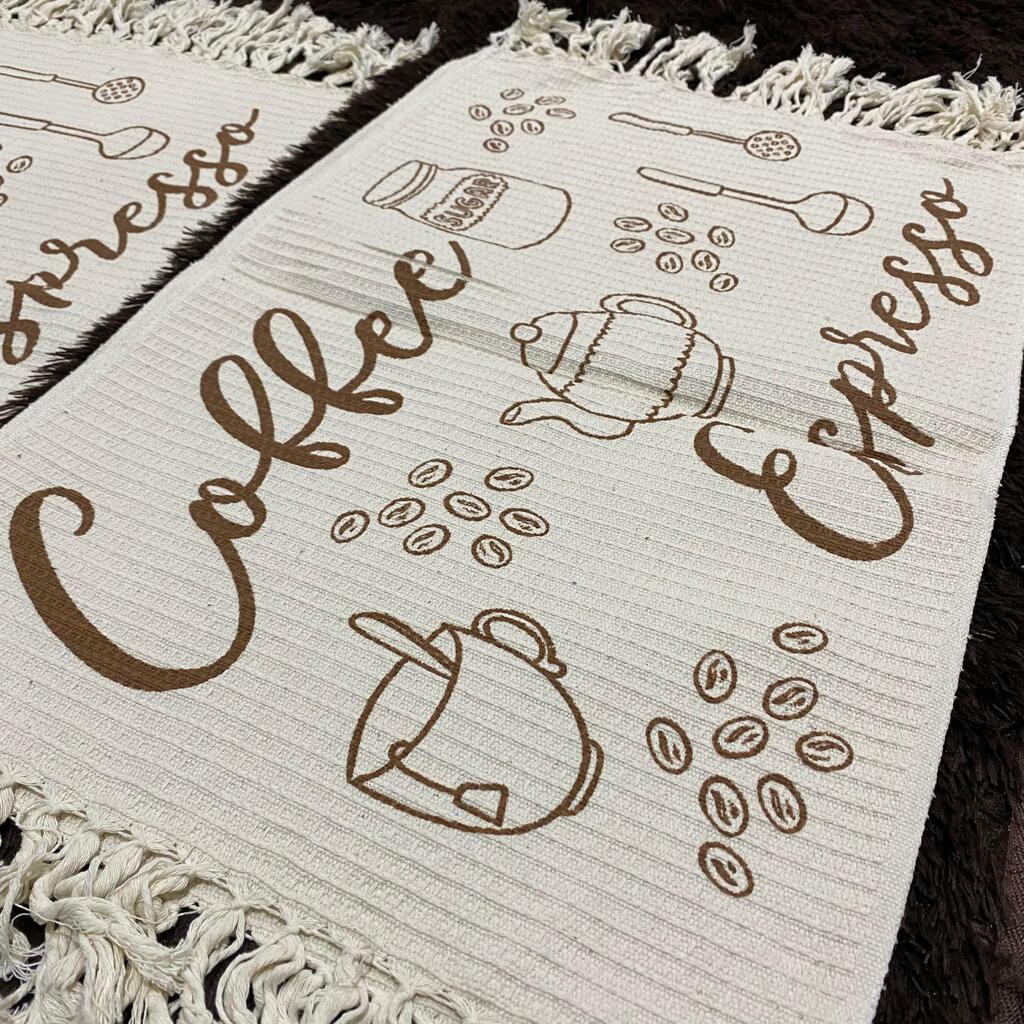 spresso
SUGAR
Coffee
Espresso